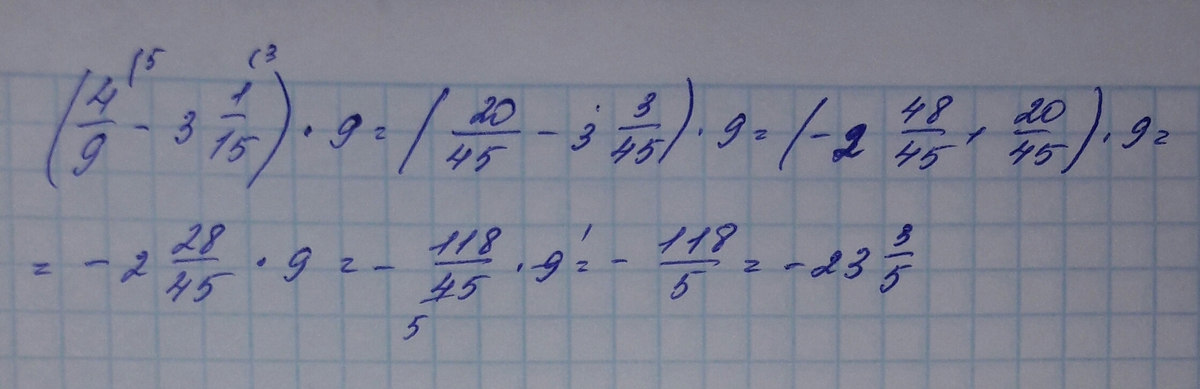 (4/9 (5 - 3 1/15 (3) · 9 = (20/45 - 3 3/45) · 9 = (-2 48/45 + 20/45) · 9 =
= - 2 28/45 · 9 = - 118/45 5 · 9 1 = - 118/5 = - 23 3/5